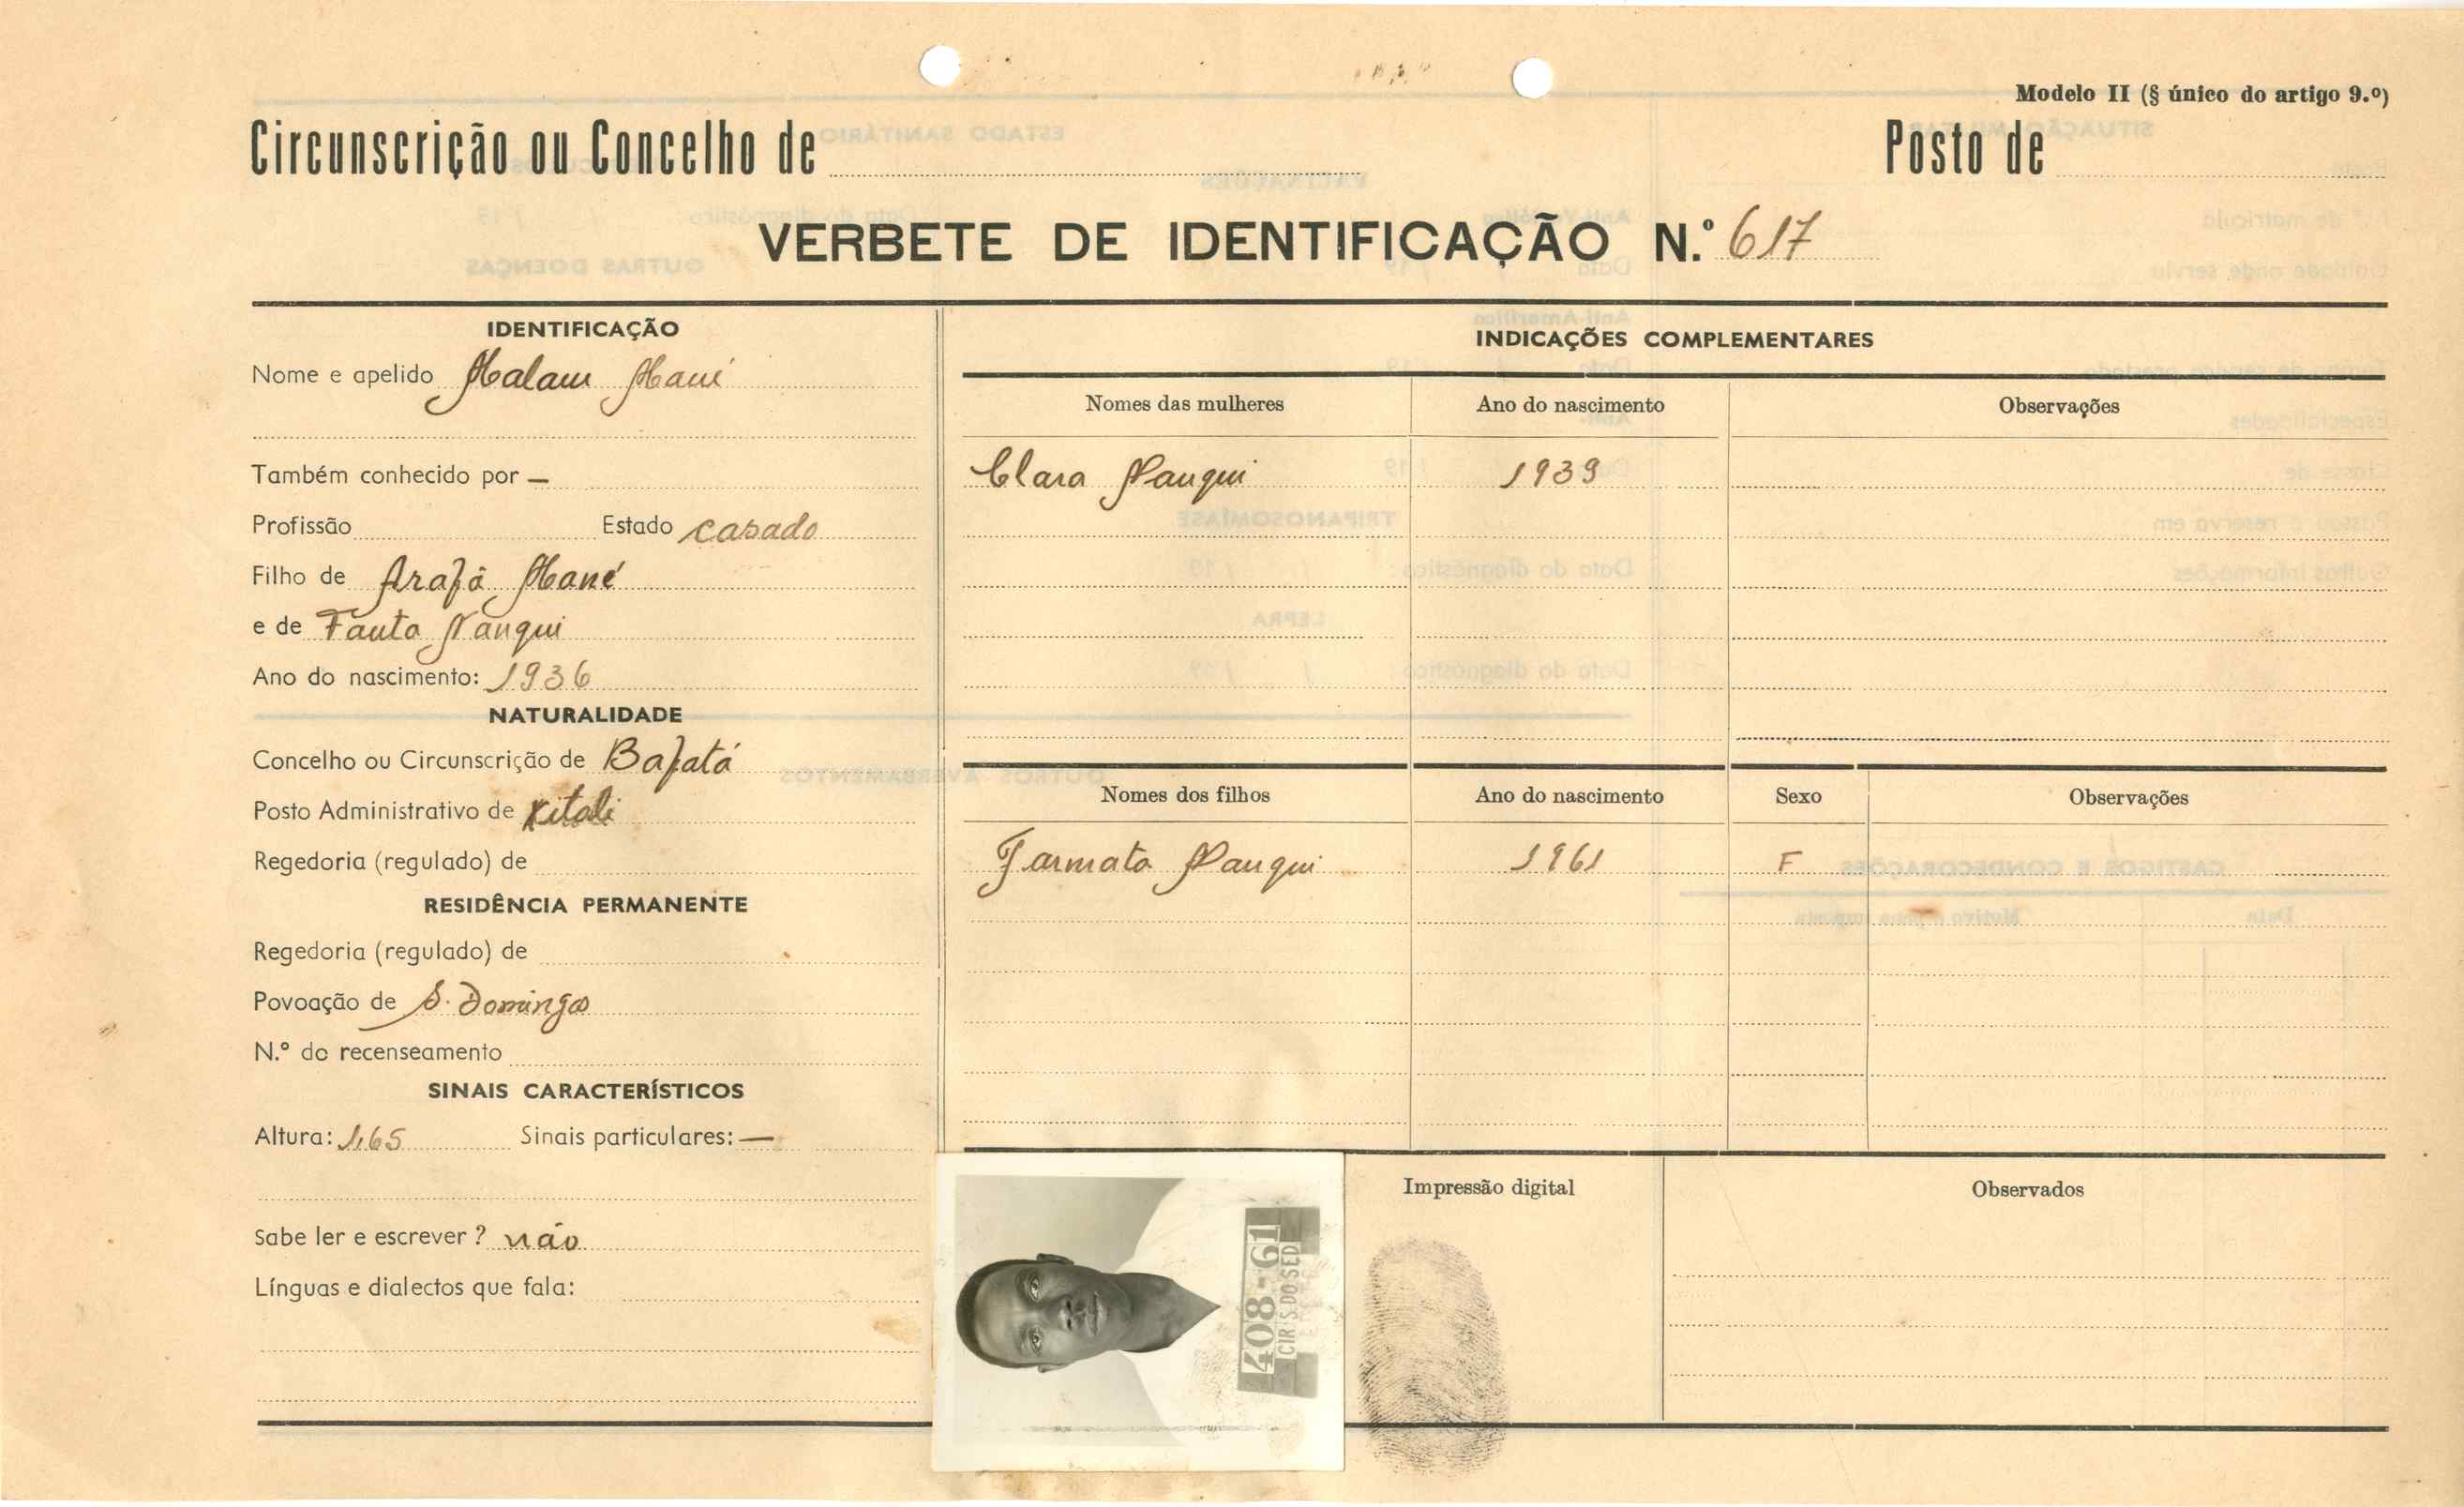 Modelo II (§ único do artigo 9.º)
Circunscrição ou Concelho de
Posto de
VERBETE DE IDENTIFICAÇÃO N.º 617
IDENTIFICAÇÃO
Nome e apelido Malam Mané
Também conhecido por —
Profissão Estado casado
Filho de Arafã Mané
e de Fanta Nanqui
Ano do nascimento: 1936
NATURALIDADE
Concelho ou Circunscrição de Bafatá
Posto Administrativo de Xitoli
Regedoria (regulado) de
RESIDÊNCIA PERMANENTE
Regedoria (regulado) de
Povoação de S. Domingos
N.º do recenseamento
SINAIS CARACTERÍSTICOS
Altura: 1,65 Sinais particulares: —
Sabe ler e escrever? não
Línguas e dialectos que fala:
INDICAÇÕES COMPLEMENTARES
Nomes das mulheres Ano do nascimento Observações
Clara Nanqui 1939
Nomes dos filhos Ano do nascimento Sexo Observações
Farmata Nanqui 1961 F
408-61
CIR S.DO SED
Impressão digital
Observados